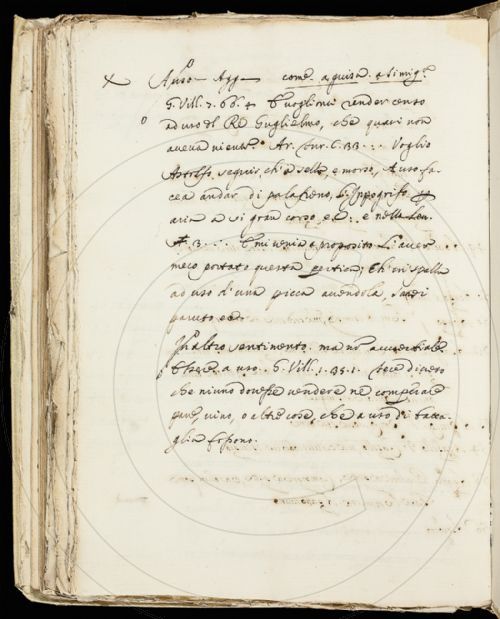 A uso Agg come a guisa a simigl.
G. Vill. 7. 66. 4 E voglionci render censo
ad uso del Re Guglielmo, che quasi non
aveva niente. Ar. Fur. C. 33 . . . Voglio
Astolfo seguir, ch' a sella, e morso, A uso fa-
cea andar di palafreno, L'Ippogrifo
aria a si gran corso, ec. e nella Cen.
A. 3 . . . E mi venia a proposito L'aver
meco portato questa pertica, Ch' in spalla
ad uso d' una picca avendola, Sarei
paruto ec.
In altro sentimento. ma non avverbiale
Essere a uso. G. Vill. 1. 35. 1. fece divieto
che niuno dovesse vendere ne comperare
pane, vino, o altre cose, che a uso di batta-
glia fossono.